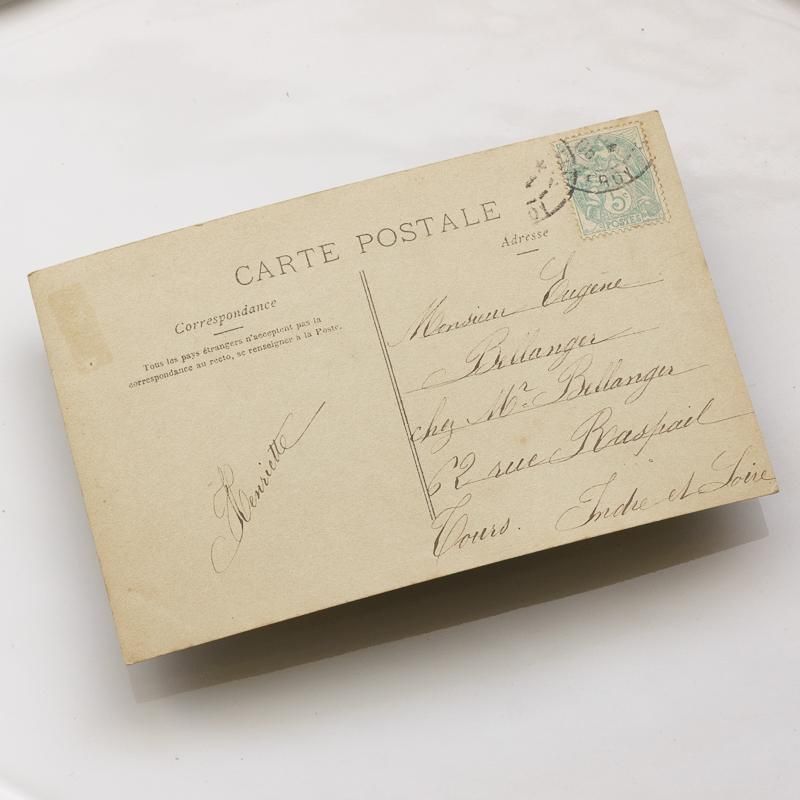 CARTE POSTALE
Correspondance
Tous les pays étrangers n'acceptent pas la
correspondance au recto, se renseigner à la Poste.
Henriette
Adresse
Monsieur Eugène
Bellanger
chez Mr Bellanger
62 rue Raspail
Tours. Indre et Loire
5c
POSTES